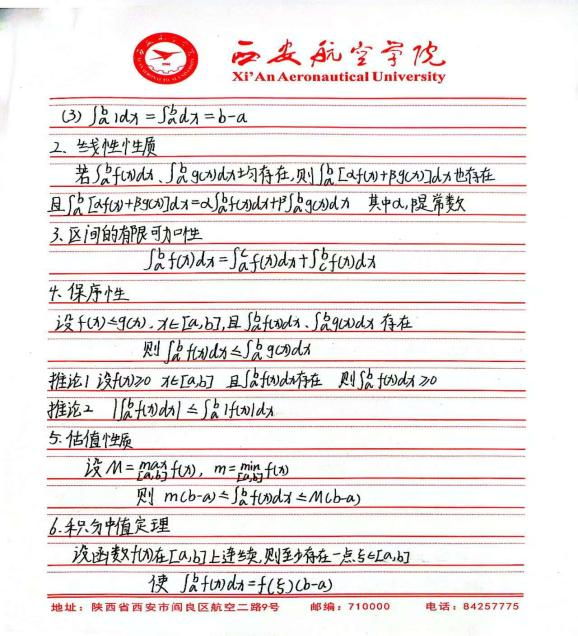 西安航空学院
Xi'An Aeronautical University
(3) ∫ₐᵇ 1dx = ∫ₐᵇ dx = b-a
2、线性性质
若∫ₐᵇ f(x)dx、∫ₐᵇ g(x)dx均存在,则∫ₐᵇ [αf(x)+βg(x)]dx也存在
且∫ₐᵇ [αf(x)+βg(x)]dx=α∫ₐᵇ f(x)dx+β∫ₐᵇ g(x)dx 其中α,β是常数
3、区间的有限可加性
∫ₐᵇ f(x)dx=∫ₐᶜ f(x)dx+∫꜀ᵇ f(x)dx
4、保序性
设f(x)≤g(x),x∈[a,b],且∫ₐᵇ f(x)dx、∫ₐᵇ g(x)dx 存在
则∫ₐᵇ f(x)dx≤∫ₐᵇ g(x)dx
推论1 设f(x)≥0 x∈[a,b] 且∫ₐᵇ f(x)dx存在 则∫ₐᵇ f(x)dx≥0
推论2 |∫ₐᵇ f(x)dx| ≤ ∫ₐᵇ |f(x)|dx
5、估值性质
设M=max[a,b] f(x), m=min[a,b] f(x)
则 m(b-a)≤∫ₐᵇ f(x)dx≤M(b-a)
6、积分中值定理
设函数f(x)在[a,b]上连续,则至少存在一点ξ∈[a,b]
使 ∫ₐᵇ f(x)dx=f(ξ)(b-a)
地址:陕西省西安市阎良区航空二路9号 邮编:710000 电话:84257775